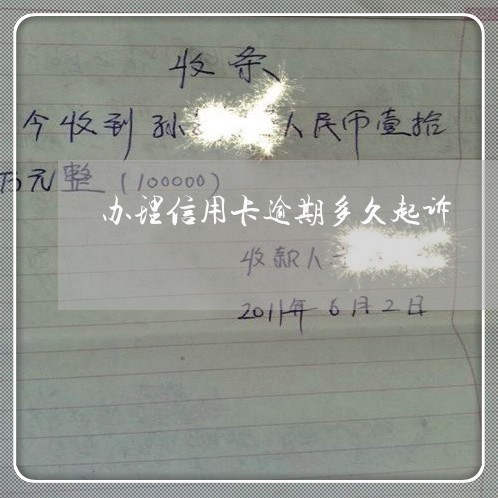 收条
今收到孙 人民币壹拾
万元整（100000）
办理信用卡逾期多久起诉
收款人
2011年6月2日